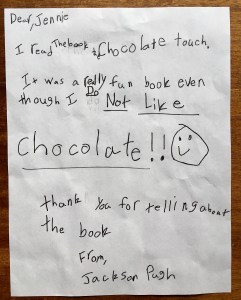 Dear, Jennie
I read The book Chocolate touch.
It was a really fun book even
though I Do Not Like
Chocolate!!
thank You for telling about
the book
From,
Jackson Pugh